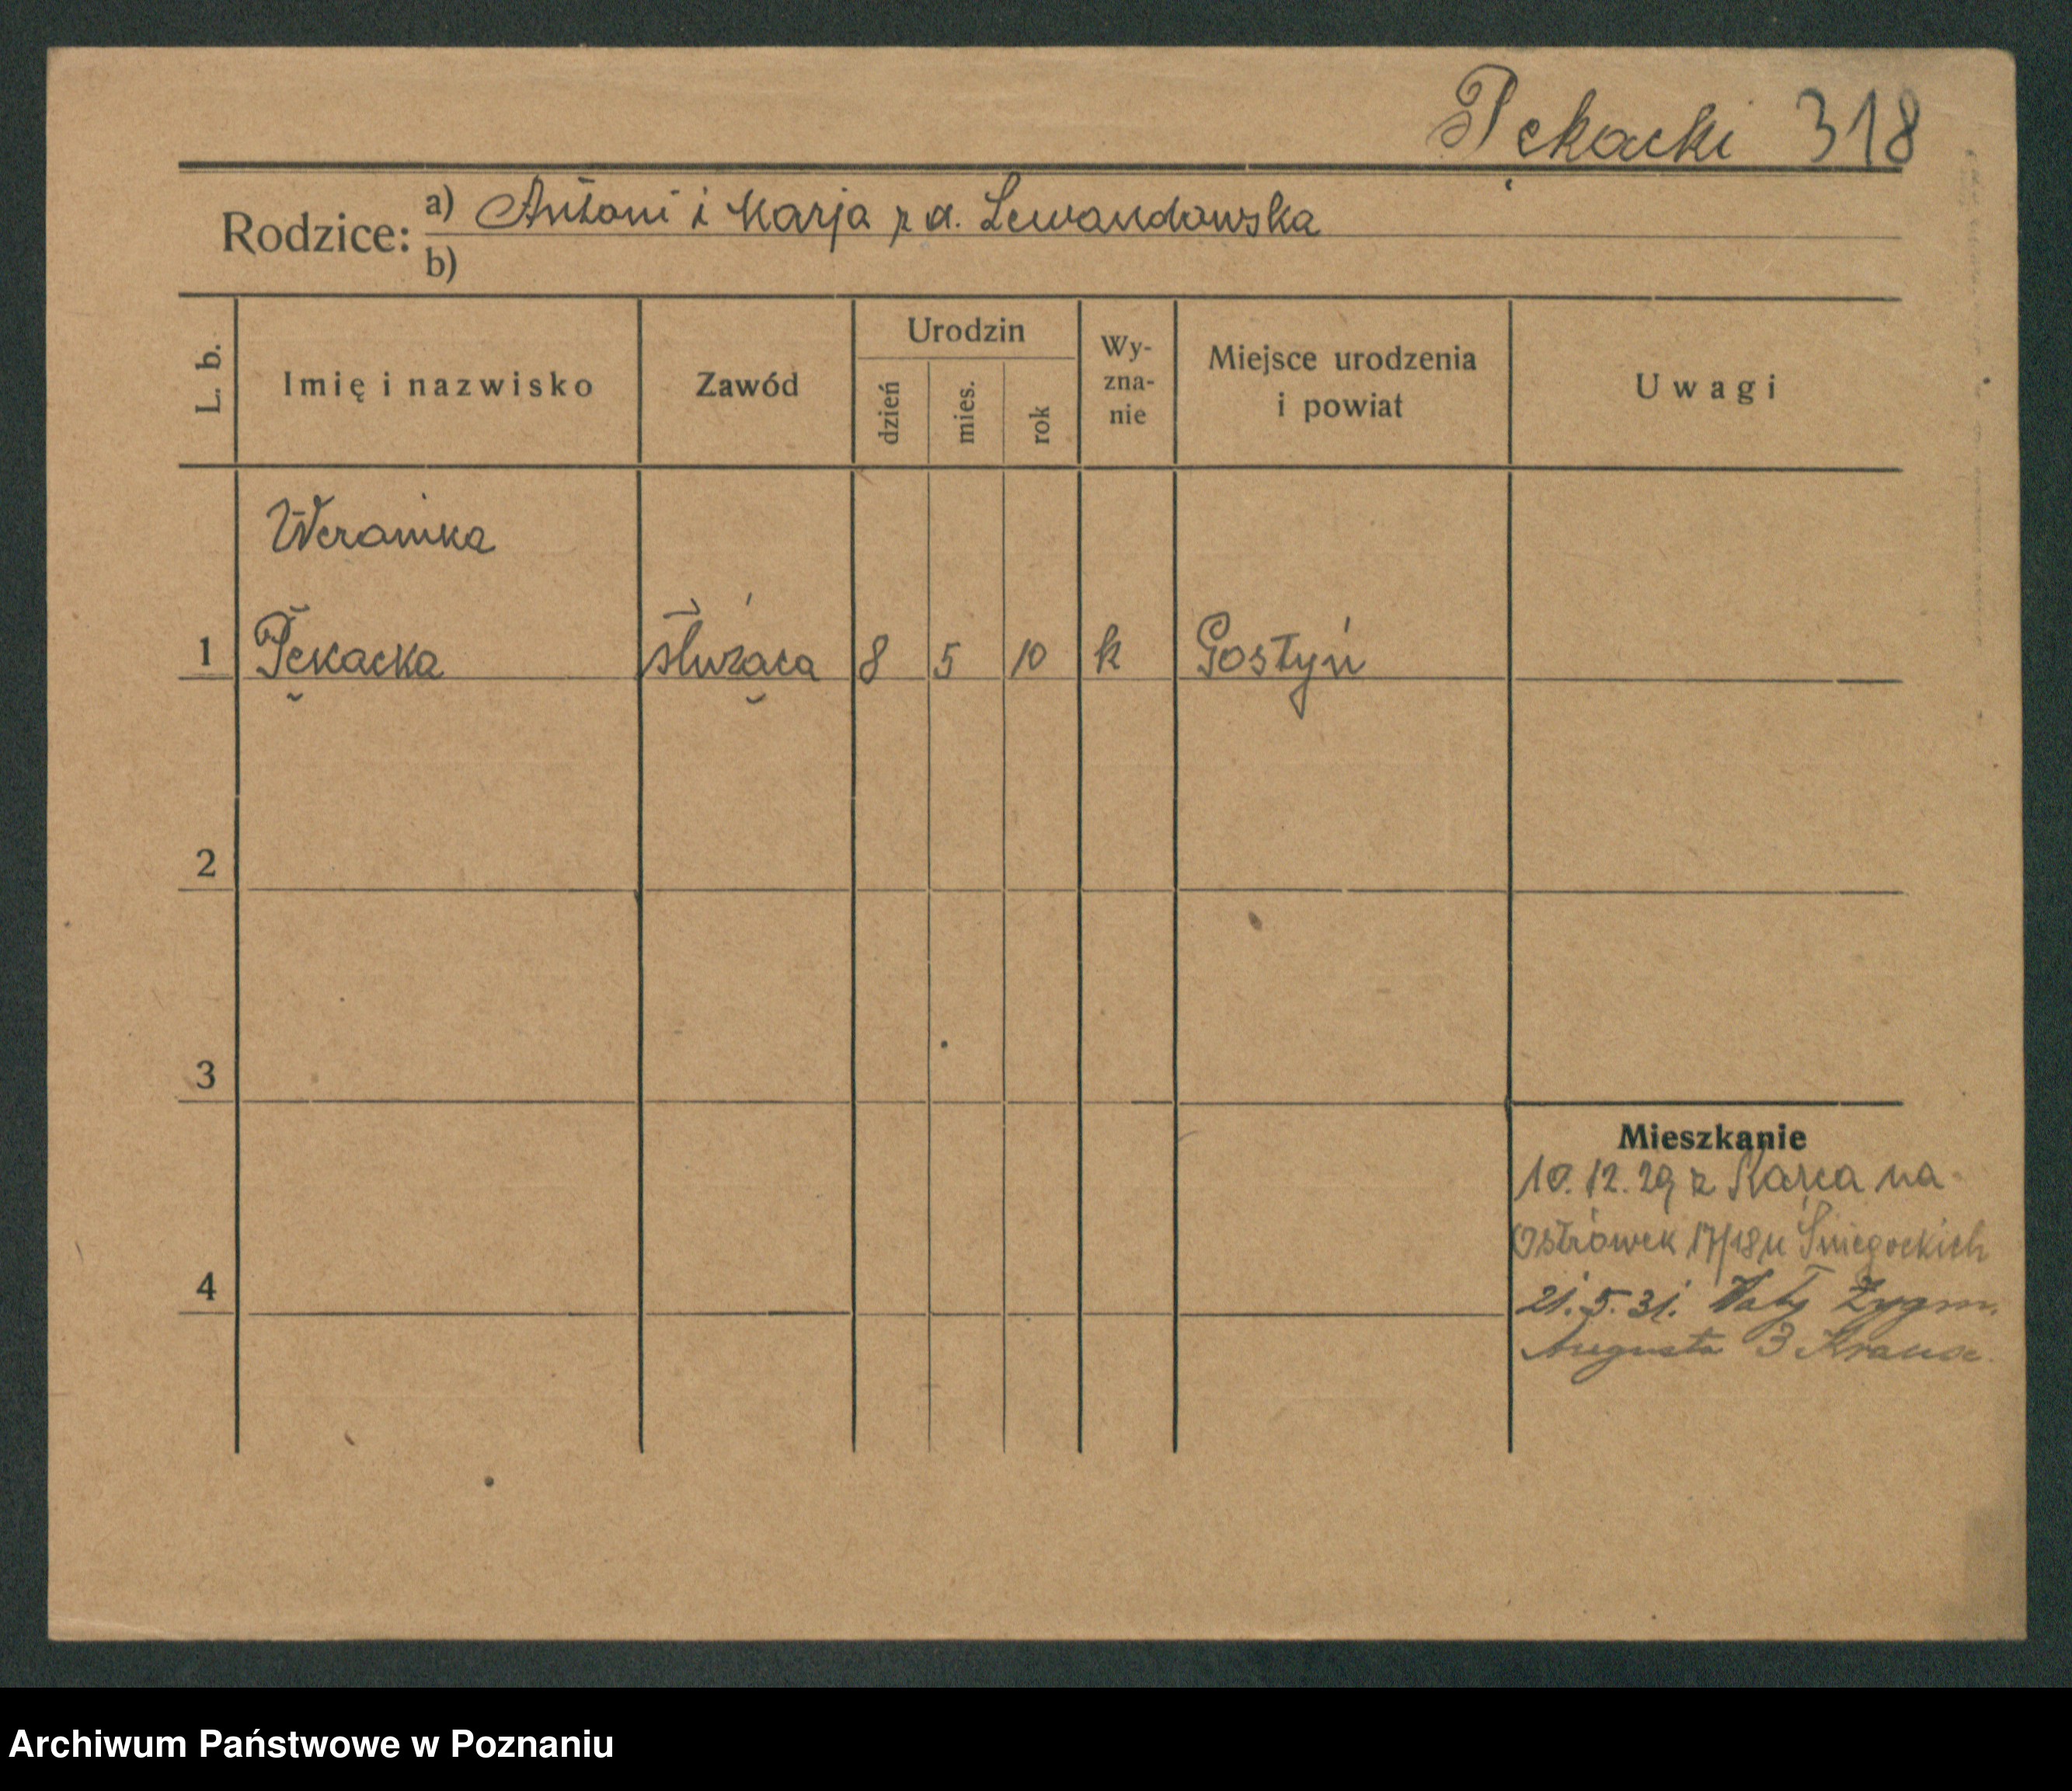 Pękacki 318
Rodzice: a) Antoni i Marja z d. Lewandowska
b)
L. b.
Imię i nazwisko
Zawód
Urodzin
dzień
mies.
rok
Wy-
zna-
nie
Miejsce urodzenia
i powiat
Uwagi
Weronika
1 Pękacka służąca 8 5 10 k Gostyń
2
3
4
Mieszkanie
10.12.29 z Karca na
Ostrówek 17/18 u Śniegockich
21.5.31. Wały Zygm.
Augusta 3 Krause
Archiwum Państwowe w Poznaniu